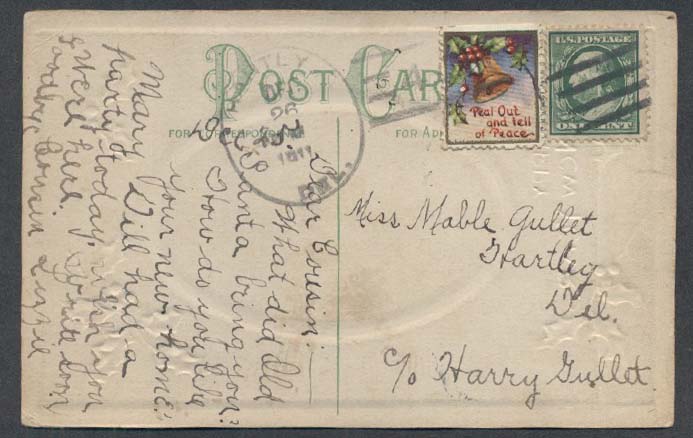 POST CARD
FOR CORRESPONDENCE
FOR AD
TLY
DEC
26
1911
DEL.
Peal Out
and tell
of Peace
U.S. POSTAGE
ONE CENT
Dear Cousin:
What did Old
Santa bring you?
How do you like
your new home?
Mary Dill had a
party today wish you
were here. Write soon
Goodbye Cousin Lizzie
Miss Mable Gullet
Hartley
Del.
c/o Harry Gullet